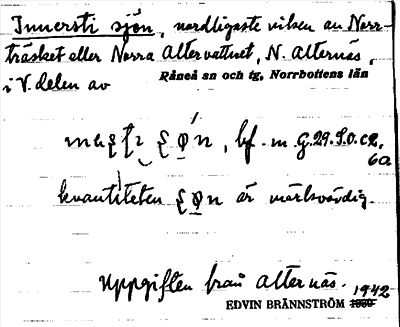 Innersti sjön, nordligaste viken av Norr-
träsket eller Norra Altervattnet, N. Alternäs,
i V. delen av Råneå sn och tg, Norrbottens län
bf. m G.29.S.O.c2.
60
kvantiteten är märkvärdig.
Uppgiften från Alternäs. 1942
EDVIN BRÄNNSTRÖM 1939